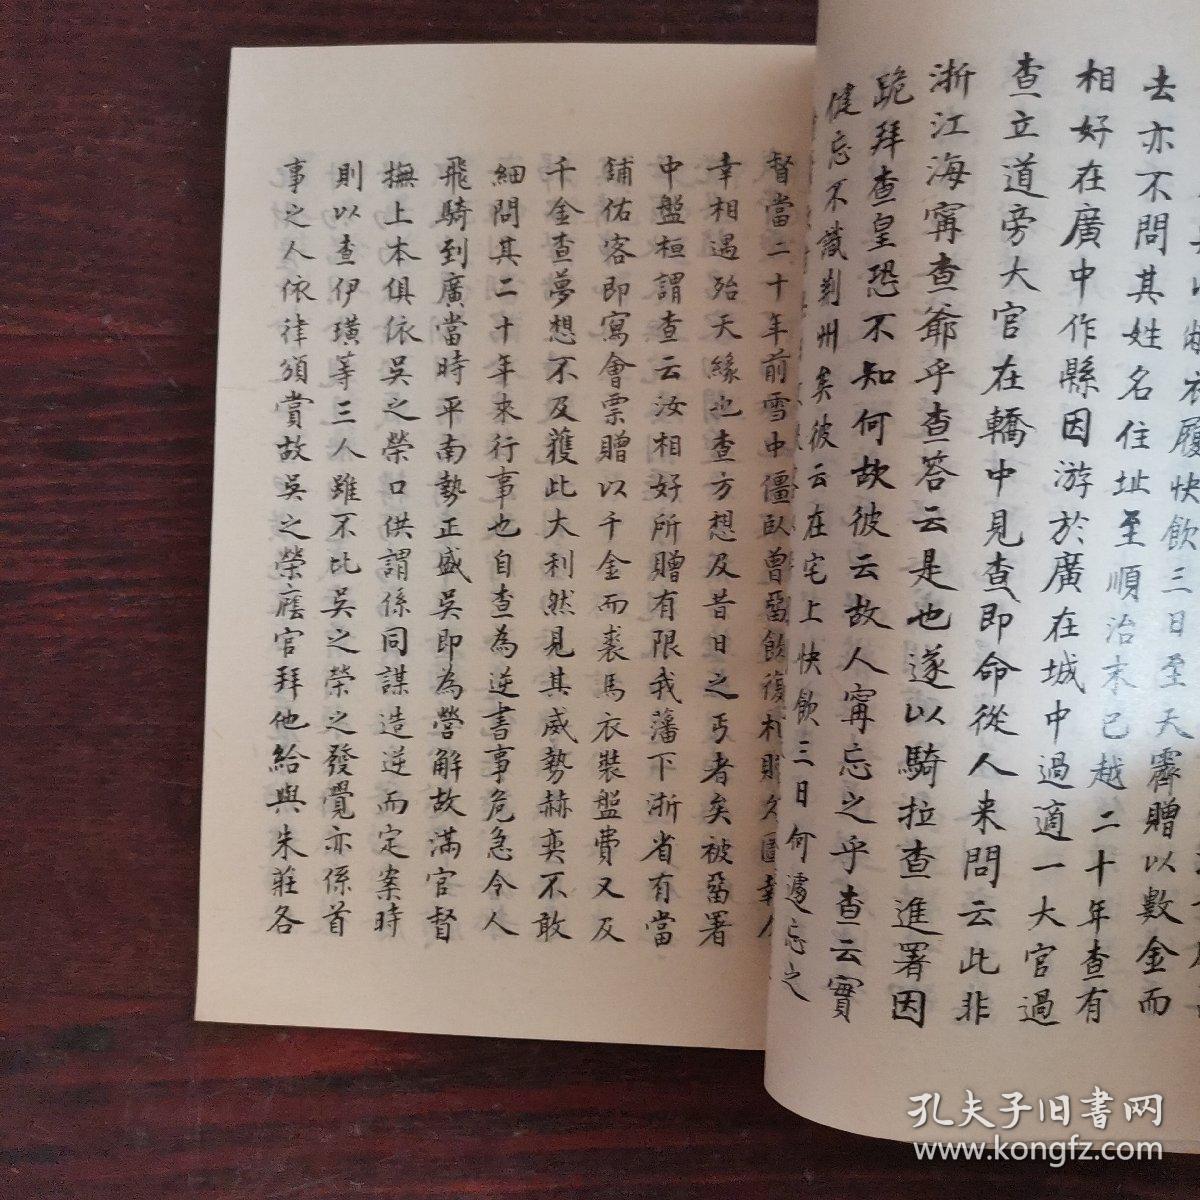 衣履快飲三日至天霽贈以數金而
去亦不問其姓名住址至順治末已越二十年查有
相好在廣中作縣因游於廣在城中過適一大官過
查立道旁大官在轎中見查即命從人来問云此非
浙江海寗查爺乎查答云是也遂以騎拉查進署因
跪拜查皇恐不知何故彼云故人寗忘之乎查云實
健忘不識荆州矣彼云在宅上快飲三日何遽忘之
督當二十年前雪中僵臥曾畱飲復
幸相遇殆天緣也查方想及昔日之丐者矣被畱署
中盤桓謂查云汝相好所贈有限我藩下浙省有當
鋪佑客即寫會票贈以千金而裘馬衣裝盤費又及
千金查夢想不及獲此大利然見其威勢赫奕不敢
細問其二十年來行事也自查為逆書事危急令人
飛騎到廣當時平南勢正盛吳即為營解故滿官督
撫上本俱依吳之榮口供謂係同謀造逆而定案時
則以查伊璜等三人雖不比吳之榮之發覺亦係首
事之人依律頒賞故吳之榮應官拜他給與朱莊各
孔夫子旧書网
www.kongfz.com